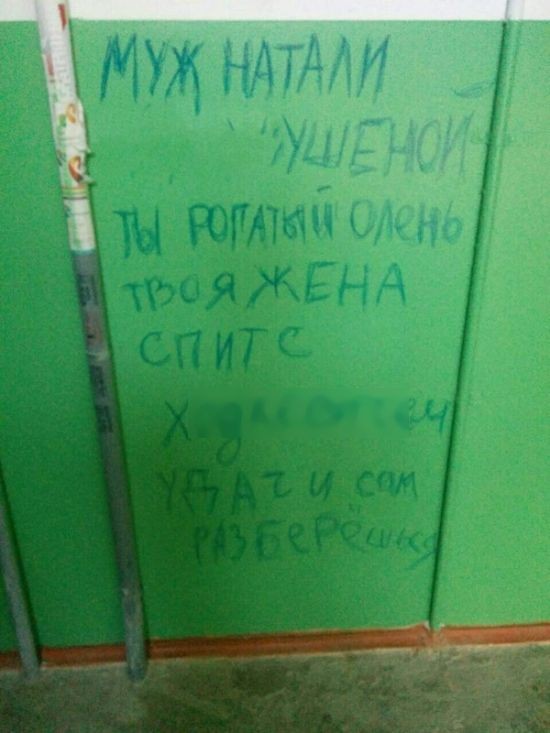 МУЖ НАТАЛИ
УШЕНОЙ
ТЫ РОГАТЫЙ ОЛЕНЬ
ТВОЯ ЖЕНА
СПИТ С
УДАЧИ САМ
РАЗБЕРЁШЬСЯ